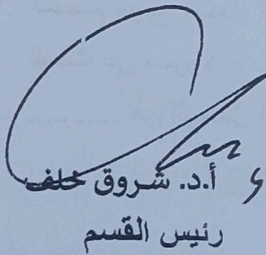 أ.د. شروق خلف
رئيس القسم